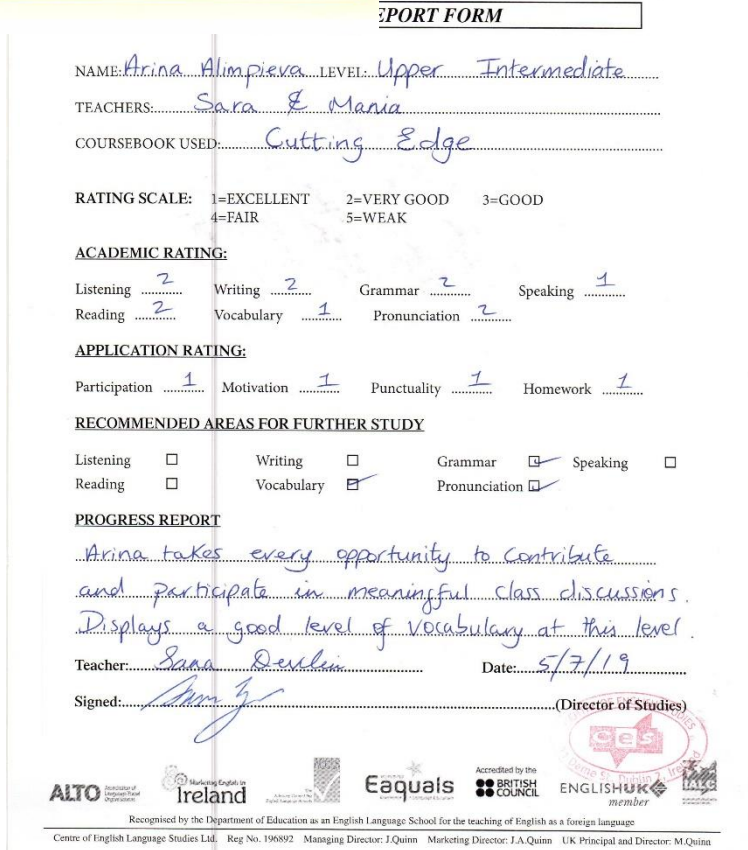 EPORT FORM
NAME: Arina Alimpieva LEVEL: Upper Intermediate
TEACHERS: Sara & Mania
COURSEBOOK USED: Cutting Edge
RATING SCALE: 1=EXCELLENT 2=VERY GOOD 3=GOOD
4=FAIR 5=WEAK
ACADEMIC RATING:
Listening 2 Writing 2 Grammar 2 Speaking 1
Reading 2 Vocabulary 1 Pronunciation 2
APPLICATION RATING:
Participation 1 Motivation 1 Punctuality 1 Homework 1
RECOMMENDED AREAS FOR FURTHER STUDY
Listening ☐ Writing ☐ Grammar ☑ Speaking ☐
Reading ☐ Vocabulary ☑ Pronunciation ☑
PROGRESS REPORT
Arina takes every opportunity to contribute
and participate in meaningful class discussions.
Displays a good level of vocabulary at this level.
Teacher: Sara Devlin Date: 5/7/19
Signed: (Director of Studies)
ces
Dame St. Dublin 2, Ireland
ALTO
Marketing English in Ireland
Eaquals
Accredited by the BRITISH COUNCIL
ENGLISHUK member
IALC
Recognised by the Department of Education as an English Language School for the teaching of English as a foreign language
Centre of English Language Studies Ltd. Reg No. 196892 Managing Director: J.Quinn Marketing Director: J.A.Quinn UK Principal and Director: M.Quinn